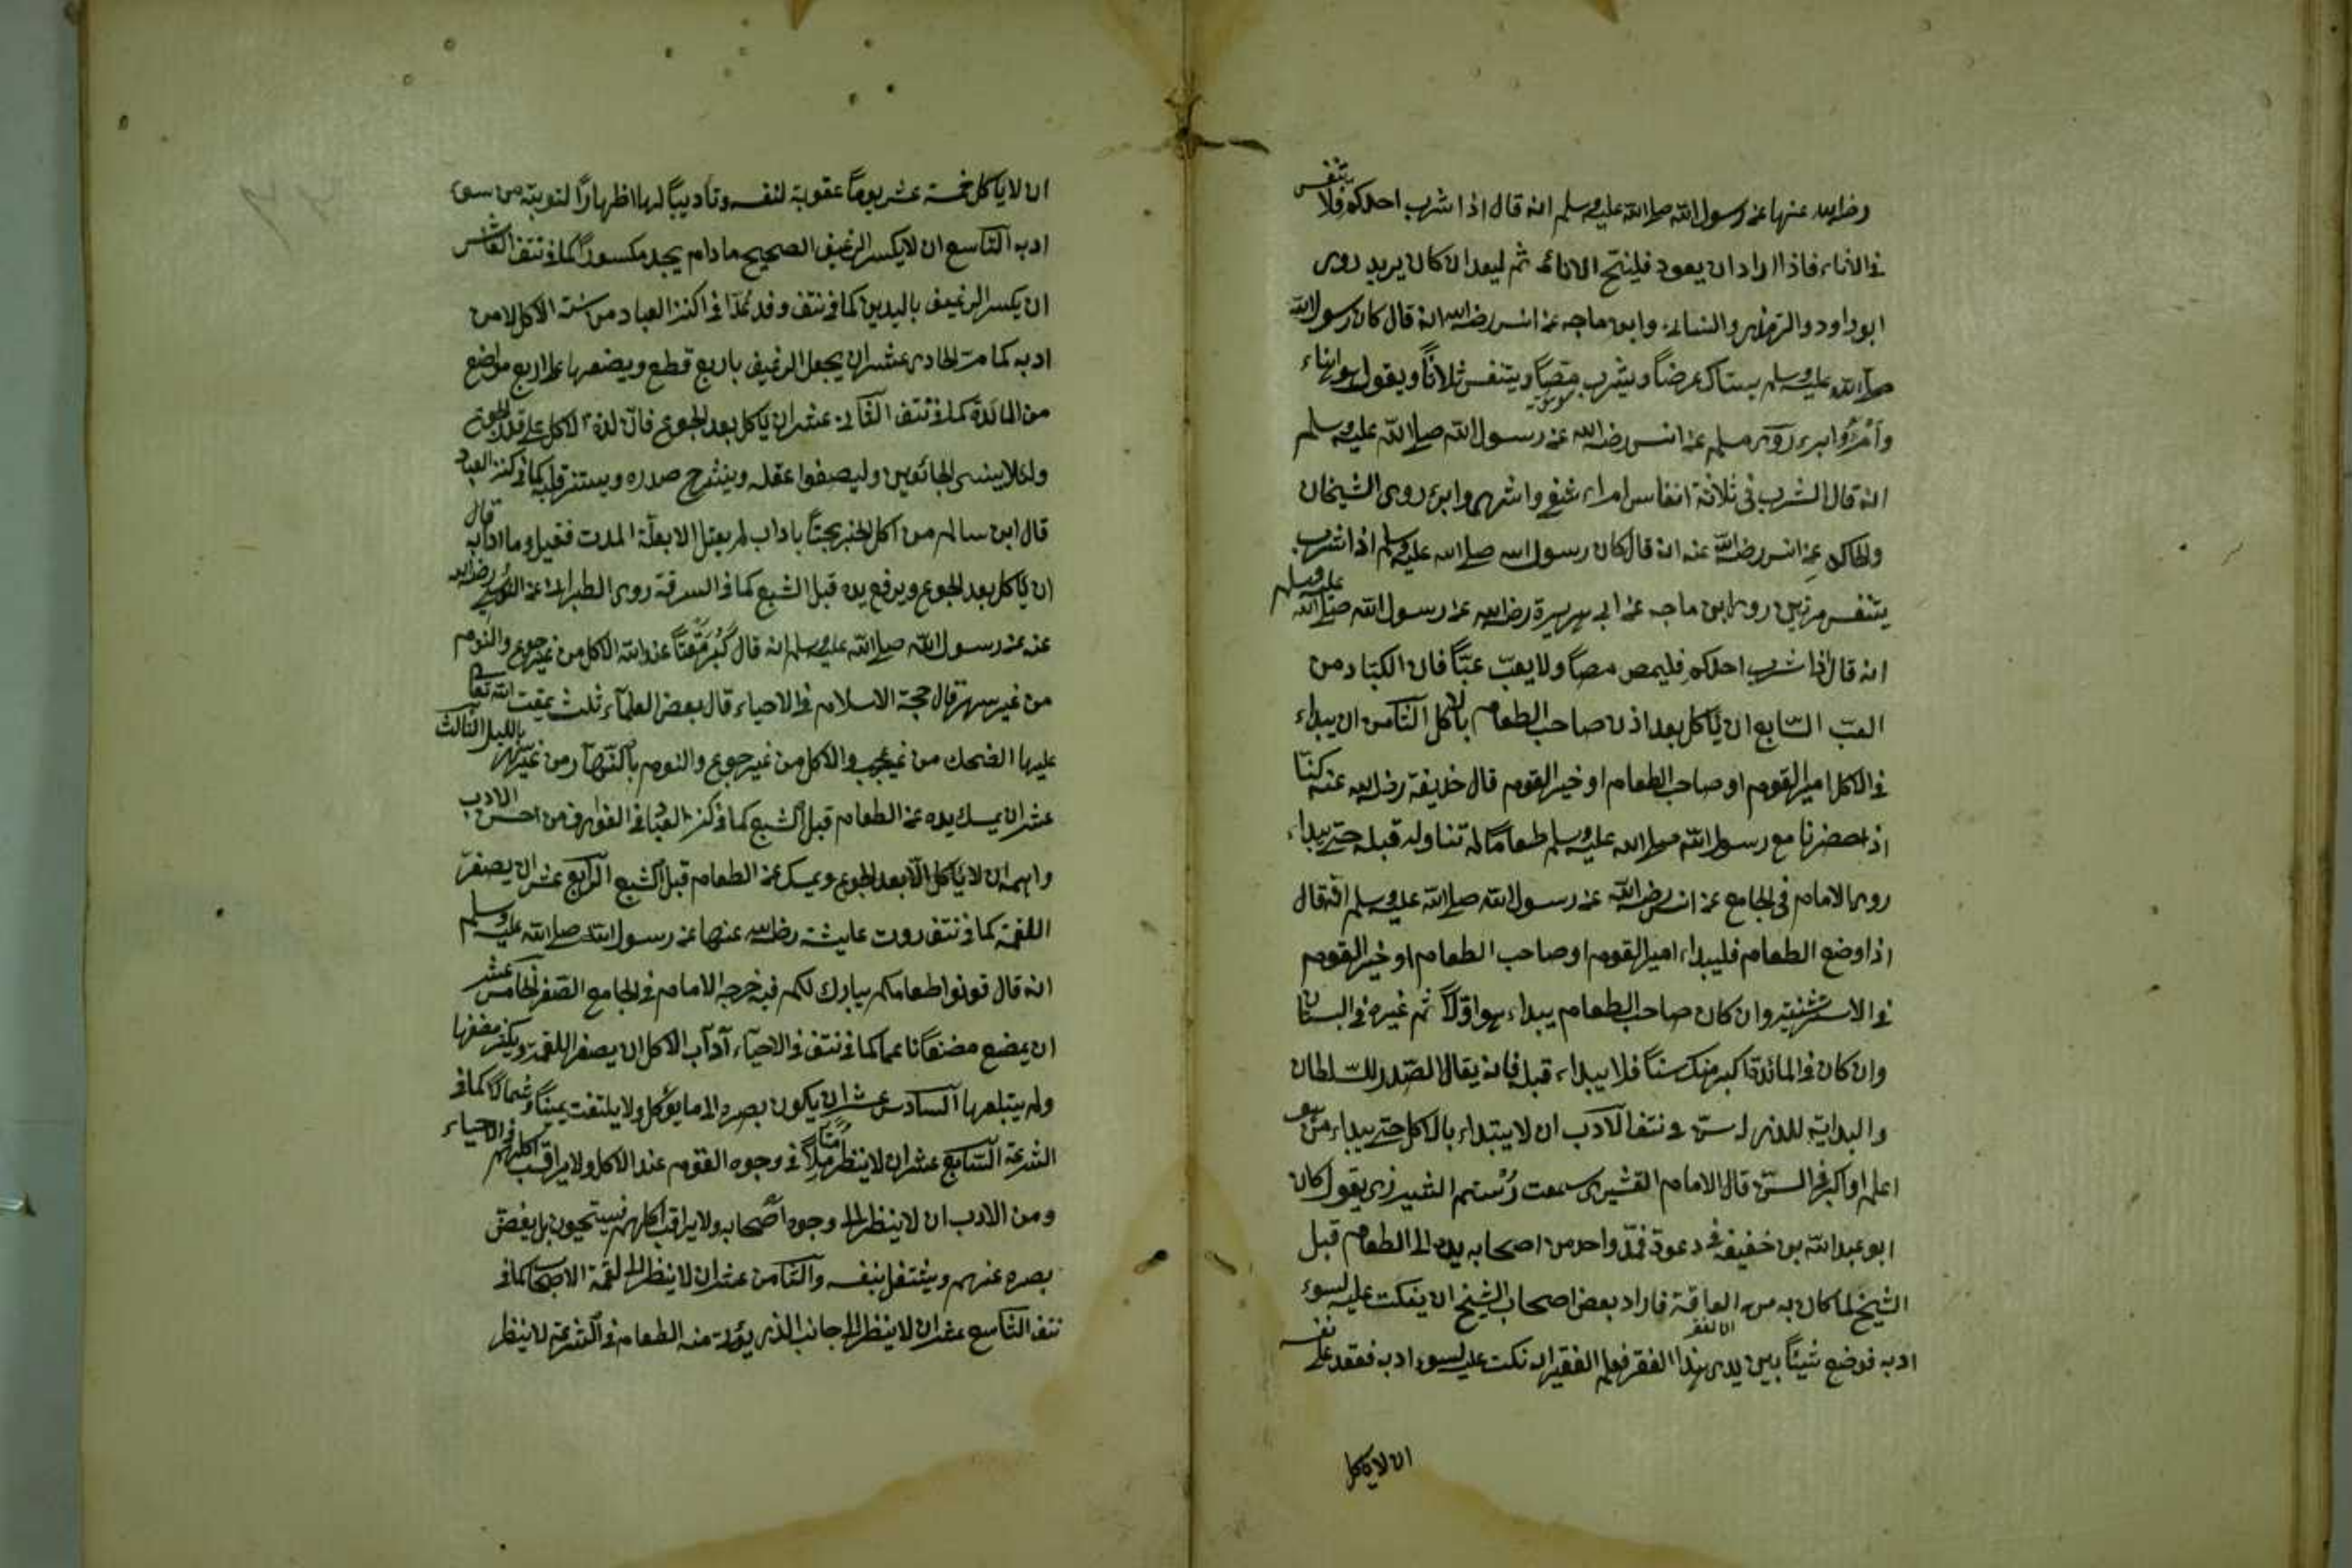 رضى الله عنها عن رسول الله صلى الله عليه وسلم انه قال اذا شرب احدكم فلا يتنفس
فى الاناء فاذا اراد ان يعود فلينح الاناء ثم ليعد ان كان يريد روى
ابو داود والترمذى والنسائى وابن ماجه عن انس رضى الله انه قال كان رسول الله
صلى الله عليه وسلم يستاك عرضاً ويشرب مصّاً ويتنفس ثلاثاً ويقول هو اهناء
وأمْرَأُ وابرء روى مسلم عن انس رضى الله عن رسول الله صلى الله عليه وسلم
انه قال الشرب فى ثلاثة انفاس امراء واشهى وابرء روى الشيخان
والحاكم عن انس رضى الله عنه انه قال كان رسول الله صلى الله عليه وسلم اذا شرب
يتنفس مرتين روى ابن ماجه عن ابى هريرة رضى الله عن رسول الله صلى الله عليه وسلم
انه قال اذا شرب احدكم فليمص مصاً ولا يعبّ عبّاً فان الكباد من
العبّ السّابع ان يأكل بعد اذن صاحب الطعام بالاكل الثامن ان يبداء
فى الاكل امير القوم او صاحب الطعام او خير القوم قال حذيفة رضى الله عنه كنّا
اذا حضرنا مع رسول الله صلى الله عليه وسلم طعاماً لم تناوله قبله حتى يبداء
روى الامام فى الجامع عن انس رضى الله عن رسول الله صلى الله عليه وسلم انه قال
اذا وضع الطعام فليبداء امير القوم او صاحب الطعام او خير القوم
وان كان صاحب الطعام يبداء هو اوّلاً ثم غيره فى البستان
وان كان فى المائدة اكبر منك سنّاً فلا يبداء قبله فانه يقال الصّدر للسّلطان
والبداية للذى اسنّ فى نتف الآدب ان لا يبتداء بالاكل حتى يبداء من هو
اعلم او اكبر فى السنّ قال الامام القشيرى سمعت رُسْتم الشيرزى يقول كان
ابو عبد الله بن خفيف فى دعوة فمدّ واحد من اصحابه يده الى الطعام قبل
الشيخ لما كان به من الفاقة فاراد بعض اصحاب الشيخ ان ينكت عليه لسوء
ادبه فوضع شيئاً بين يدى هذا الفقر فعلم الفقير انه نكت عليه لسوء ادبه فعقد على نفسه
ان لا ياكل
ان لا ياكل خمسة عشر يوماً عقوبة لنفسه وتأديباً لها اظهاراً لتوبته من سوء
ادبه التّاسع ان لا يكسر الرغيف الصحيح ما دام يجد مكسوراً كما فى نتف العاشر
ان يكسر الرغيف باليدين كما فى نتف وقد عُدّ هذا فى اكنز العباد من سنّة الاكل لا من
ادبه كما مرّ الحادى عشر ان يجعل الرغيف باربع قطع ويضعها على اربع مواضع
من المائدة كما فى نتف الثانى عشر ان يأكل بعد الجوع فانّ لذة الاكل على قدر الجوع
ولئلا ينسى الجائعين وليصفوا عقله وينشرح صدره ويستنر قلبه كما فى كنز العباد
قال ابن سالم من اكل الخبز بحتاً باداب لم يعتل الا بعلّة الموت فقيل وما ادابه قال
ان يأكل بعد الجوع ويرفع يده قبل الشبع كما فى الشرعة روى الطبرانى عن رضى الله
عنه عن رسول الله صلى الله عليه وسلم انه قال كَبُرَ مَقْتاً عند الله الاكل من غير جوع والنوم
من غير سهر قال حجة الاسلام فى الاحياء قال بعض العلماء ثلث يمقت الله تعالى
عليها الضحك من غير عجب والاكل من غير جوع والنوم بالنّهار من غير سهر بالليل الثالث
عشر ان يمسك يده عن الطعام قبل الشبع كما فى كنز العباد فى العوارف من احسن الادب
واهمه ان لا يأكل الّا بعد الجوع ويمسك عن الطعام قبل الشبع الرّابع عشر ان يصغر
اللقمة كما فى نتف روت عايشة رضى الله عنها عن رسول الله صلى الله عليه وسلم
انه قال قوتوا طعامكم يبارك لكم فيه خرجه الامام فى الجامع الصغر الخامس عشر
ان يمضغ مضغاً ناعماً كما فى نتف فى الاحياء آداب الاكل ان يصغر اللقمة ويكثر مضغها
ولم يبتلعها السّادس عشر ان يكون بصره الى ما يؤكل ولا يلتفت يميناً وشمالاً كما فى
الشرعة السّابع عشر ان لا ينظر فى وجوه القوم عند الاكل ولا يراقب اكلهم فى الاحياء
ومن الادب ان لا ينظر الى وجوه اصحابه ولا يراقب اكلهم فيستحيون بل يغضّ
بصره عنهم ويشتغل بنفسه والثّامن عشر ان لا ينظر الى لقمة الاصحاب كما فى
نتف التّاسع عشر ان لا ينظر الى جانب الذى يؤتى منه الطعام فى الشرعة لا ينظر